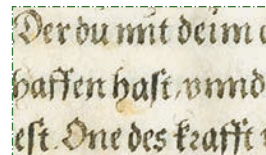 Der du mit deim
haffen hast, vnnd
est. One des krafft